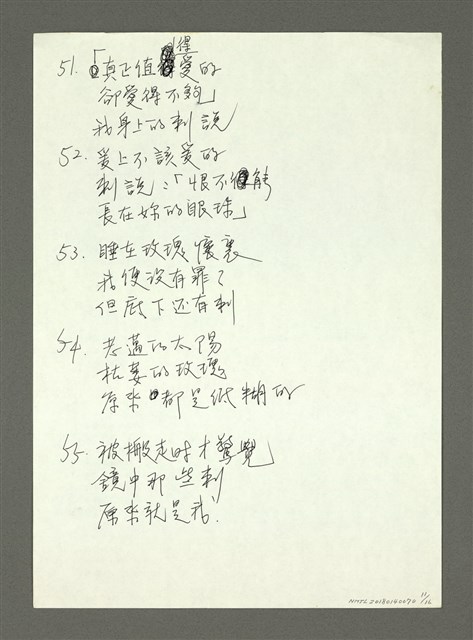 51. 「真正值得愛的
卻愛得不夠」
我身上的刺說
52. 愛上不該愛的
刺說：「恨不能
長在妳的眼珠」
53. 睡在玫瑰懷裏
我便沒有罪了
但底下还有刺
54. 老邁的太陽
枯萎的玫瑰
原來都是紙糊的
55. 被搬走时才驚覺
鏡中那些刺
原來就是我.
NMTL20180160070 11/16